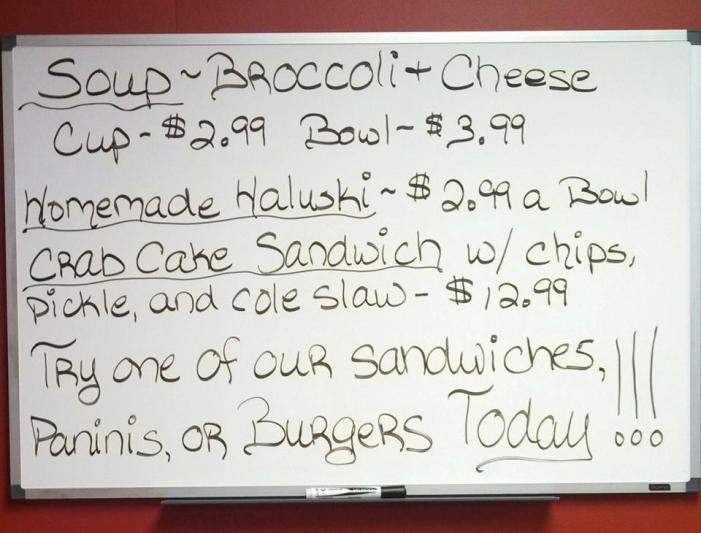 Soup ~ Broccoli + Cheese
Cup - $2.99 Bowl ~ $3.99
Homemade Haluski ~ $2.99 a Bowl
Crab Cake Sandwich w/ chips,
pickle, and cole slaw - $12.99
Try one of our sandwiches,
Paninis, or Burgers Today!!!